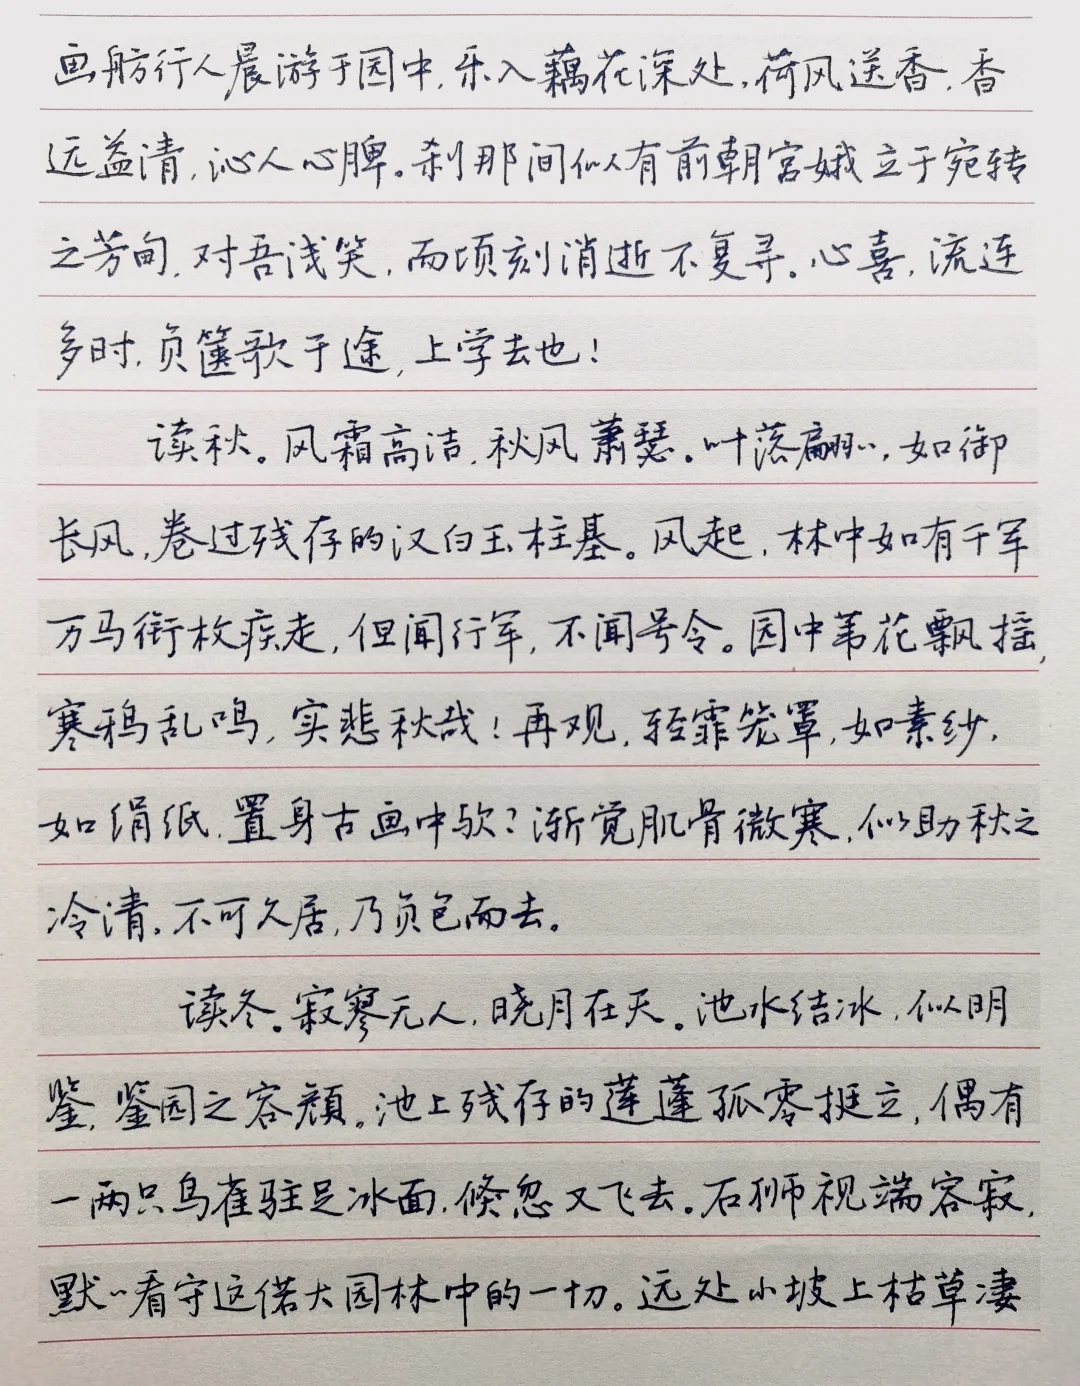 画舫行人晨游于园中，乐入藕花深处，荷风送香，香
远益清，沁人心脾。刹那间似有前朝宫娥立于宛转
之芳甸，对吾浅笑，而顷刻消逝不复寻。心喜，流连
多时，负箧歌于途，上学去也！
读秋。风霜高洁，秋风萧瑟。叶落翩〻，如御
长风，卷过残存的汉白玉柱基。风起，林中如有千军
万马衔枚疾走，但闻行军，不闻号令。园中苇花飘摇，
寒鸦乱鸣，实悲秋哉！再观，轻霏笼罩，如素纱，
如绢纸，置身古画中欤？渐觉肌骨微寒，似助秋之
冷清，不可久居，乃负包而去。
读冬。寂寥无人，晓月在天。池水结冰，似明
鉴，鉴园之容颜。池上残存的莲蓬孤零挺立，偶有
一两只鸟雀驻足冰面，倏忽又飞去。石狮视端容寂，
默〻看守这偌大园林中的一切。远处小坡上枯草凄